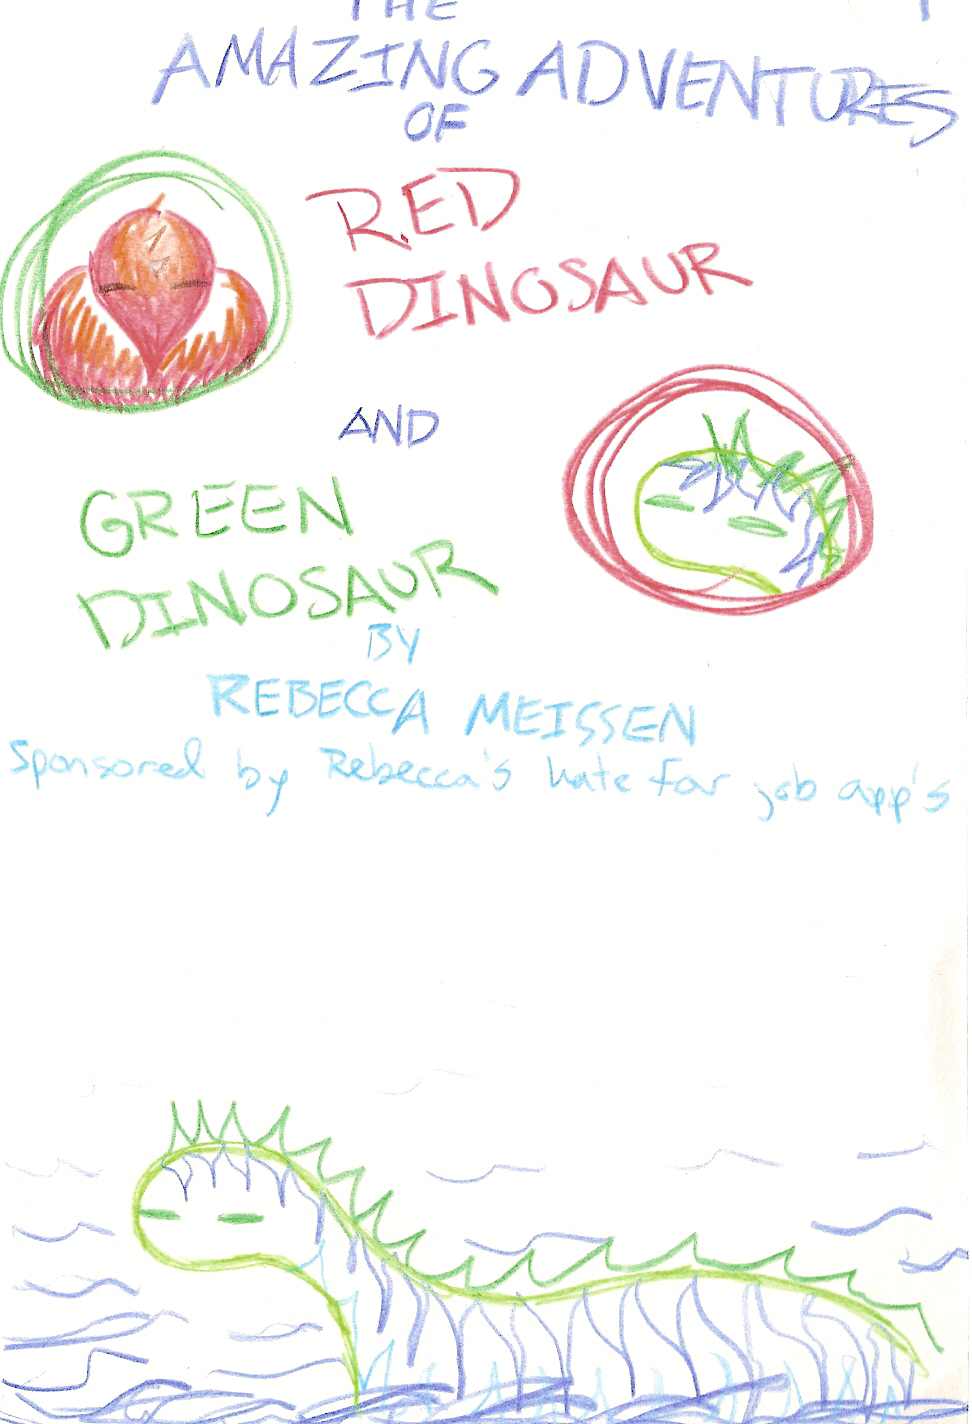 THE
AMAZING ADVENTURES
OF
RED
DINOSAUR
AND
GREEN
DINOSAUR
BY
REBECCA MEISSEN
Sponsored by Rebecca's hate for job app's